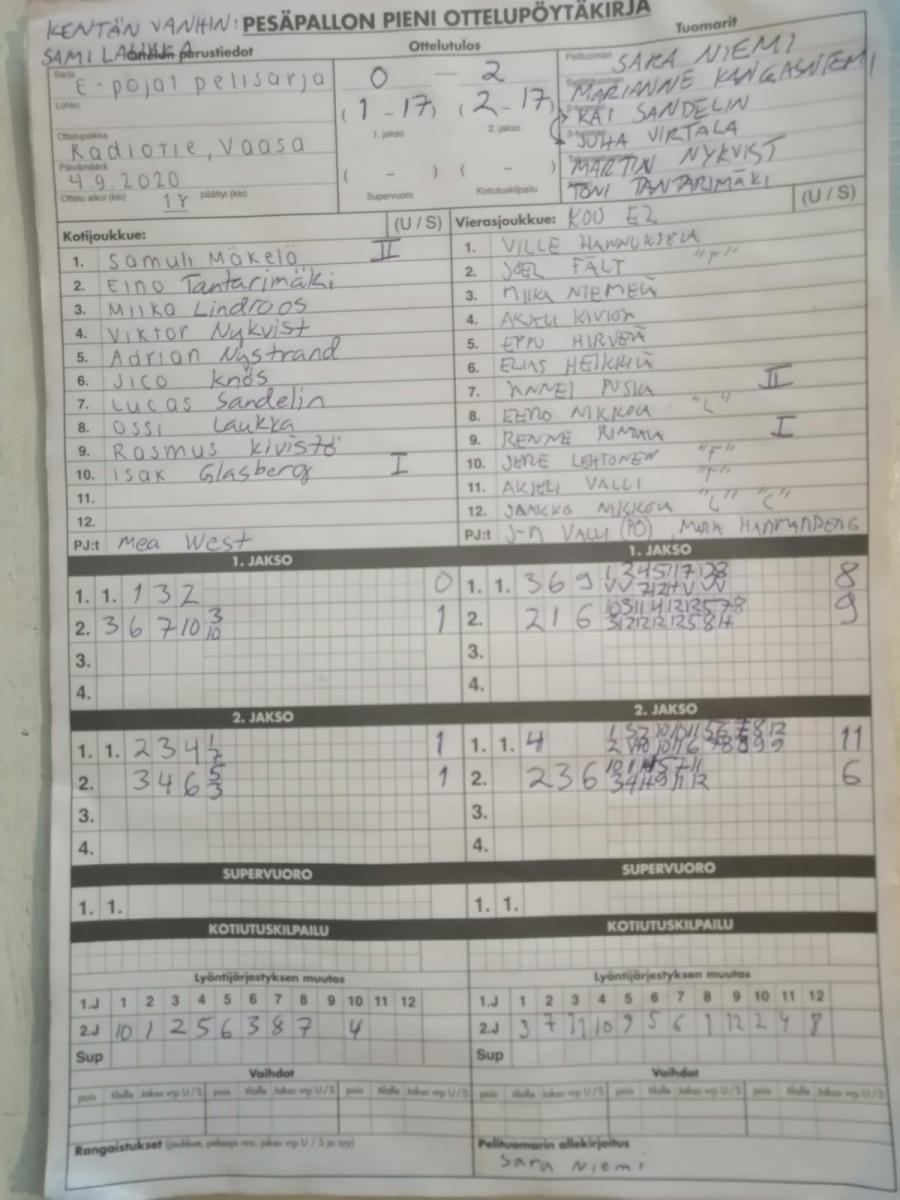 KENTÄN VANHIN: PESÄPALLON PIENI OTTELUPÖYTÄKIRJA
SAMI LAUKKA
Ottelun perustiedot Ottelutulos Tuomarit
Sarja E-pojat pelisarja 0 – 2 Pelituomari SARA NIEMI
Lohko MARIANNE KANGASNIEMI
(1 - 17) (2 - 17) KAI SANDELIN
Ottelupaikka 1. jakso 2. jakso JUHA VIRTALA
Radiotie, Vaasa MARTIN NYKVIST
Päivämäärä 4.9.2020 ( - ) ( - ) TONI TANTARIMÄKI
Ottelu alkoi (klo) 18 päättyi (klo) Supervuoro Kotiutuskilpailu
Kotijoukkue: (U / S) Vierasjoukkue: KOO E2 (U / S)
1. Samuli Mäkelä II 1. VILLE HANNUKSELA
2. Eino Tantarimäki 2. JOEL FÄLT "F"
3. Miika Lindroos 3. MIIKA NIEMELÄ
4. Viktor Nykvist 4. AKSELI KIVIOJA
5. Adrian Nystrand 5. EPPU HIRVELÄ
6. Jico Knös 6. ELIAS HEIKKILÄ
7. Lucas Sandelin 7. PUSKA II
8. Ossi Laukka 8. EERO NIKKOLA "L"
9. Rasmus Kivistö 9. RENNE RINTALA I
10. Isak Glasberg I 10. JERE LEHTONEN "F"
11. 11. AKSELI VALLI "F"
12. 12. JAAKKO NIKKOLA "L" "C"
PJ:t Mea West PJ:t J-M VALLI (PO),
1. JAKSO 1. JAKSO
1. 1. 1 3 2 0 1. 1. 3 6 9 8
2. 3 6 7 10 3 10 1 2. 2 1 6 9
3. 3.
4. 4.
2. JAKSO 2. JAKSO
1. 1. 2 3 4 1 7 1 1. 1. 4 11
2. 3 4 6 5 3 1 2. 2 3 6 6
3. 3.
4. 4.
SUPERVUORO SUPERVUORO
1. 1. 1. 1.
KOTIUTUSKILPAILU KOTIUTUSKILPAILU
Lyöntijärjestyksen muutos Lyöntijärjestyksen muutos
1.J 1 2 3 4 5 6 7 8 9 10 11 12 1.J 1 2 3 4 5 6 7 8 9 10 11 12
2.J 10 1 2 5 6 3 8 7 4 2.J 3 7 11 10 9 5 6 1 12 2 4 8
Sup Sup
Vaihdot Vaihdot
pois tilalle Jakso vrp U / S pois tilalle Jakso vrp U / S pois tilalle Jakso vrp U / S pois tilalle Jakso vrp U / S pois tilalle Jakso vrp U / S pois tilalle Jakso vrp U / S
Rangaistukset (joukkue, pelaaja nro, jakso vrp U / S ja syy) Pelituomarin allekirjoitus
Sara Niemi